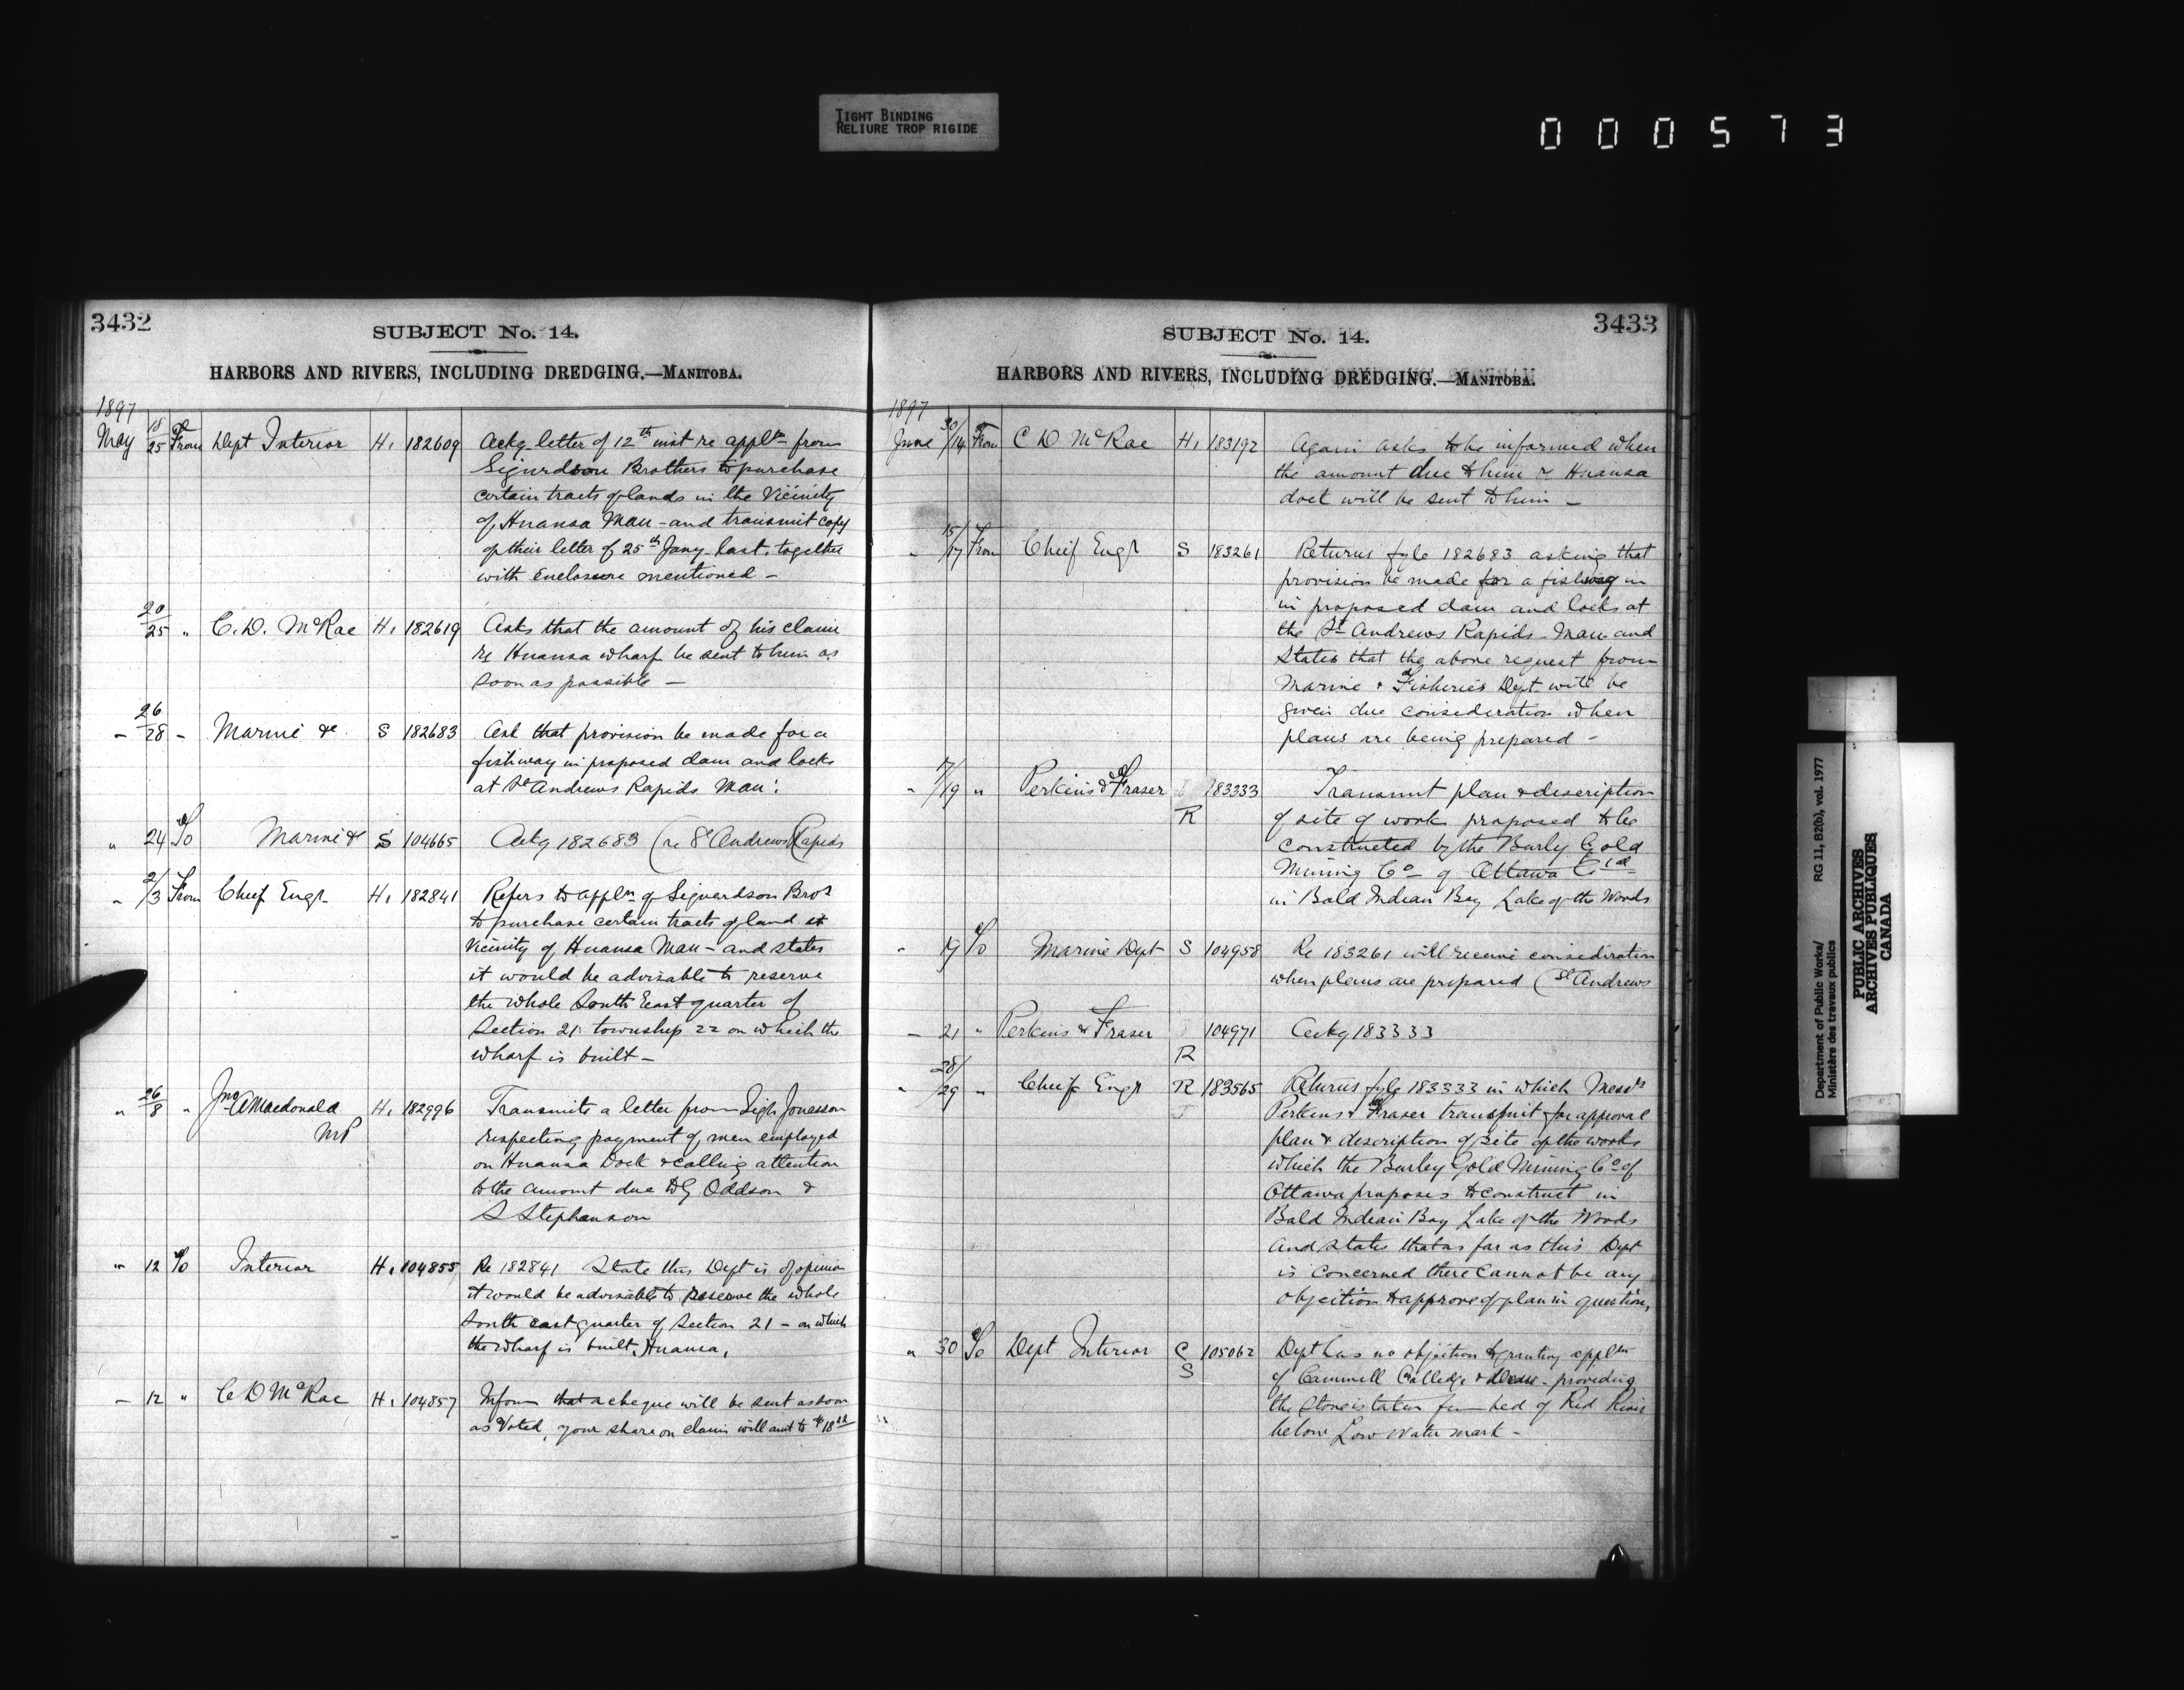 TIGHT BINDING
RELIURE TROP RIGIDE
000573
3432
SUBJECT No. 14.
HARBORS AND RIVERS, INCLUDING DREDGING.—MANITOBA.
1897
May 18/25 From Dept Interior H. 182609 Ackg letter of 12th inst re appltn from
Sigurdson Brothers to purchase
certain tracts of lands in the Vicinity
of Hnausa Man - and transmit copy
of their letter of 25th Jany last, together
with Enclosure mentioned -
20/25 " C. D. McRae H. 182619 Asks that the amount of his claim
re Hnausa wharf be sent to him as
soon as possible -
- 26/28 - Marine &c S 182683 Ask that provision be made for a
fishway in proposed dam and locks
at St Andrews Rapids Man:
" 24 To Marine &c S 104665 Ackg 182683 (re St Andrews Rapids
" 2/3 From Chief Engr H. 182841 Refers to appln of Siguardson Bros
to purchase certain tracts of land
Vicinity of Hnausa Man - and states
it would be advisable to reserve
the whole South East quarter of
Section 21 township 22 on which the
wharf is built -
" 26/8 " Jno A Macdonald H. 182996 Transmits a letter from Sigh Jonasson
MP
respecting payment of men employed
on Hnausa Dock & calling attention
to the amount due to G Oddson &
S Stephanson
" 12 To Interior H. 104855 Re 182841 State this Dept is of opinion
it would be advisable to Reserve the whole
South east quarter of Section 21 - on which
the wharf is built, Hnausa,
- 12 " C D McRae H. 104857 Inform that a cheque will be sent as soon
as Voted, your share on claim will amt to $18
3433
SUBJECT No. 14.
HARBORS AND RIVERS, INCLUDING DREDGING.—MANITOBA.
1897
June 30/14 From C D McRae H. 183192 Again asks to be informed when
the amount due to him re Hnausa
dock will be sent to him -
" 15/17 From Chief Engr S 183261 Returns fyle 182683 asking that
provision be made for a fishway in
in proposed dam and locks at
the St Andrews Rapids - Man and
States that the above request from
Marine & Fisheries Dept will be
given due consideration when
plans are being prepared -
" 17/19 " Perkins & Fraser 183333 Transmit plan & description
R
of site of works proposed to be
constructed by the Burly Gold
Mining Co - of Ottawa Ltd -
in Bald Indian Bay Lake of the Woods
" 19 To Marine Dept S 104958 Re 183261 will receive consideration
when plans are prepared (St Andrews
- 21 " Perkins & Fraser 104971 Ackg 183333
R
" 28/29 " Chief Engr R 183565 Returns fyle 183333 in which Messrs
Perkins & Fraser transmit for approval
plan & description of site of the works
which the Burley Gold Mining Co of
Ottawa proposes to construct in
Bald Indian Bay Lake of the Woods
and states that as far as this Dept
is concerned there cannot be any
objection to approve of plan in question,
" 30 To Dept Interior C 105062 Dept has no objection to granting appltn
S
of Cammell & - providing
the Stone is taken from bed of Red River
below Low Water mark -
Department of Public Works/ RG 11, B2(b), vol. 1977
Ministère des travaux publics
PUBLIC ARCHIVES
ARCHIVES PUBLIQUES
CANADA